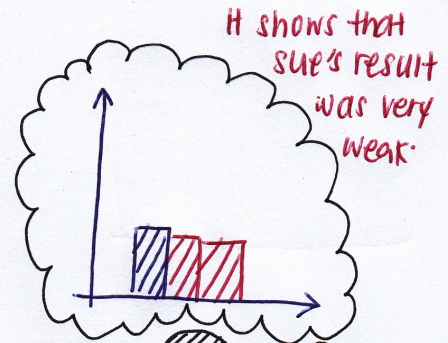 It shows that
sue's result
was very
weak.